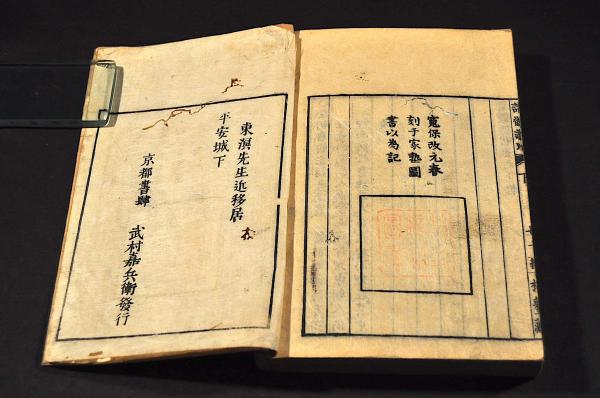 寛保改元春
刻于家塾圖
書以為記
東溟先生近移居
平安城下
京都書肆 武村嘉兵衛發行